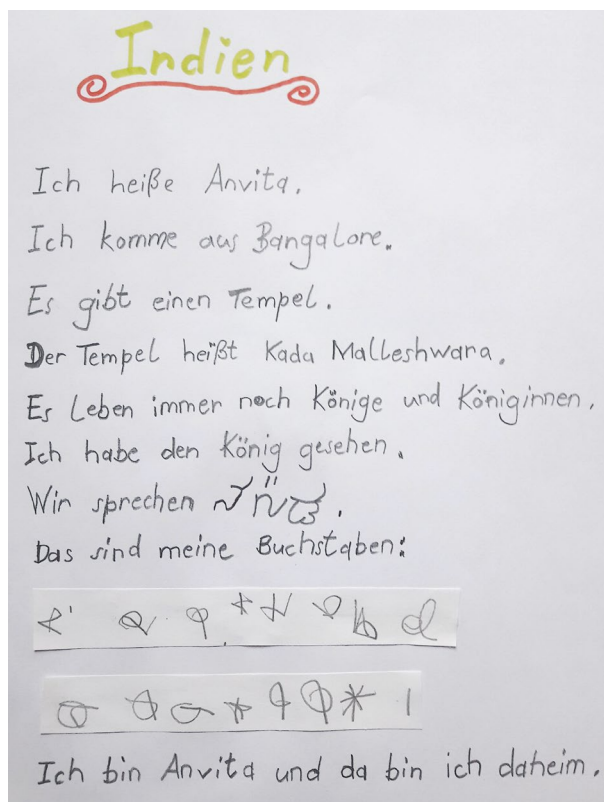 Indien
Ich heiße Anvita.
Ich komme aus Bangalore.
Es gibt einen Tempel.
Der Tempel heißt Kadu Malleshwara.
Es Leben immer noch Könige und Königinnen.
Ich habe den König gesehen.
Wir sprechen
Das sind meine Buchstaben:
Ich bin Anvita und da bin ich daheim.